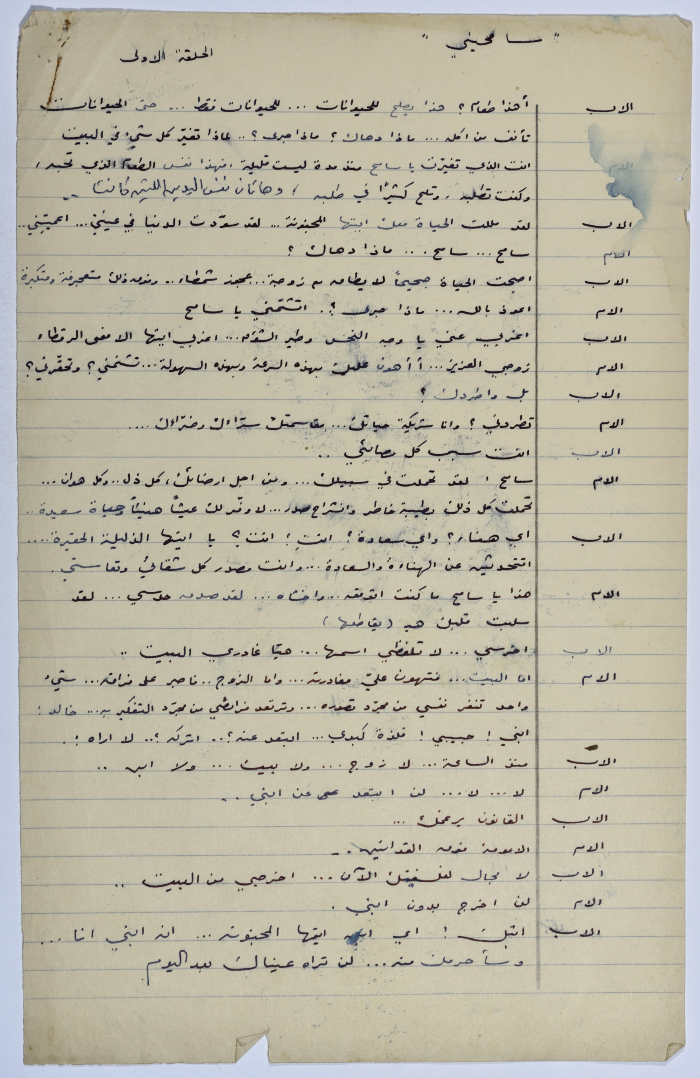 " سامحيني "
الحلقة الاولى
الاب أهذا طعام ؟ هذا يصلح للحيوانات ... للحيوانات فقط ... حتى الحيوانات
تأنف من اكله ... ماذا دهاك ؟ ماذا جرى ؟ .. لماذا تغيّر كل شيء في البيت
الام انت الذي تغيّرت يا سامح منذ مدة ليست قليلة ، فهذا نفس الطعام الذي تحبه ،
وكنت تطلبه ، وتلح كثيرًا في طلبه ، وهاتان نفس اليدين اللتين كانتا ..
الاب لقد مللت الحياة معك ايتها المجنونة ... لقد سوّدت الدنيا في عيني ... اعميتِني ..
الام سامح ... سامح ... ماذا دهاك ؟
الاب اصبحت الحياة جحيماً لا يطاق مع زوجة .. عجوز شمطاء .. وفوق ذلك متعجرفة ومتكبرة
الام اعوذ بالله ... ماذا جرى ؟ .. اتشتمني يا سامح
الاب اغربي عني يا وجه النحس وطير الشؤم ... اغربي ايتها الافعى الرقطاء
الام زوجي العزيز ... أأهون عليك بهذه السرعة وبهذه السهولة ... تشتمني ؟ وتحقّرني ؟
الاب بل واطردك ؟
الام تطردني ؟ وانا شريكة حياتك ... مقاسمتك سرّاءك وضرّاءك ....
الاب انت سبب كل مصائبي ..
الام سامح ! لقد تحملت في سبيلك ... ومن اجل ارضائك ، كل ذل .. وكل هوان ...
تحملت كل ذلك بطيبة خاطر وانشراح صدر ... لاوفّر لك عيشاً هنيئاً وحياة سعيدة ..
الاب اي هناء ؟ واي سعادة ؟ انتِ ؟ انت ؟ يا ايتها الذليلة الحقيرة ....
اتتحدثين عن الهناءة والسعادة ... وانت مصدر كل شقائي وتعاستي .
الام هذا يا سامح ما كنت اتوقعه .. واخشاه ... لقد صدق حدسي ... لقد
سلبت قلبك هي ( يقاطعها )
الاب اخرسي ... لا تلفظي اسمها ... هيّا غادري البيت ..
الام اما البيت ... فتهون عليّ مغادرته ... واما الزوج .. فاصبر على فراقه ... شيء
واحد تنفر نفسي من مجرّد تصوره ... وترتعد فرائصي من مجرّد التفكير به ... خالد :
ابني ! حبيبي ! فلذة كبدي ... ابتعد عنه ؟ .. اتركه ؟ .. لا اراه ! .
الاب منذ الساعة ... لا زوج ... ولا بيت ... ولا ابن ..
الام لا ... لا ... لن ابتعد عن ابني ..
الاب القانون يرغمك ...
الام الامومة فوق القوانين ..
الاب لا مجال لفلسفتك الآن ... اخرجي من البيت ..
الام لن اخرج بدون ابني .
الاب ابنك ! اي ابن ايتها المجنونة ... انه ابني انا ...
وسأحرمك منه ... لن تراه عيناك بعد اليوم